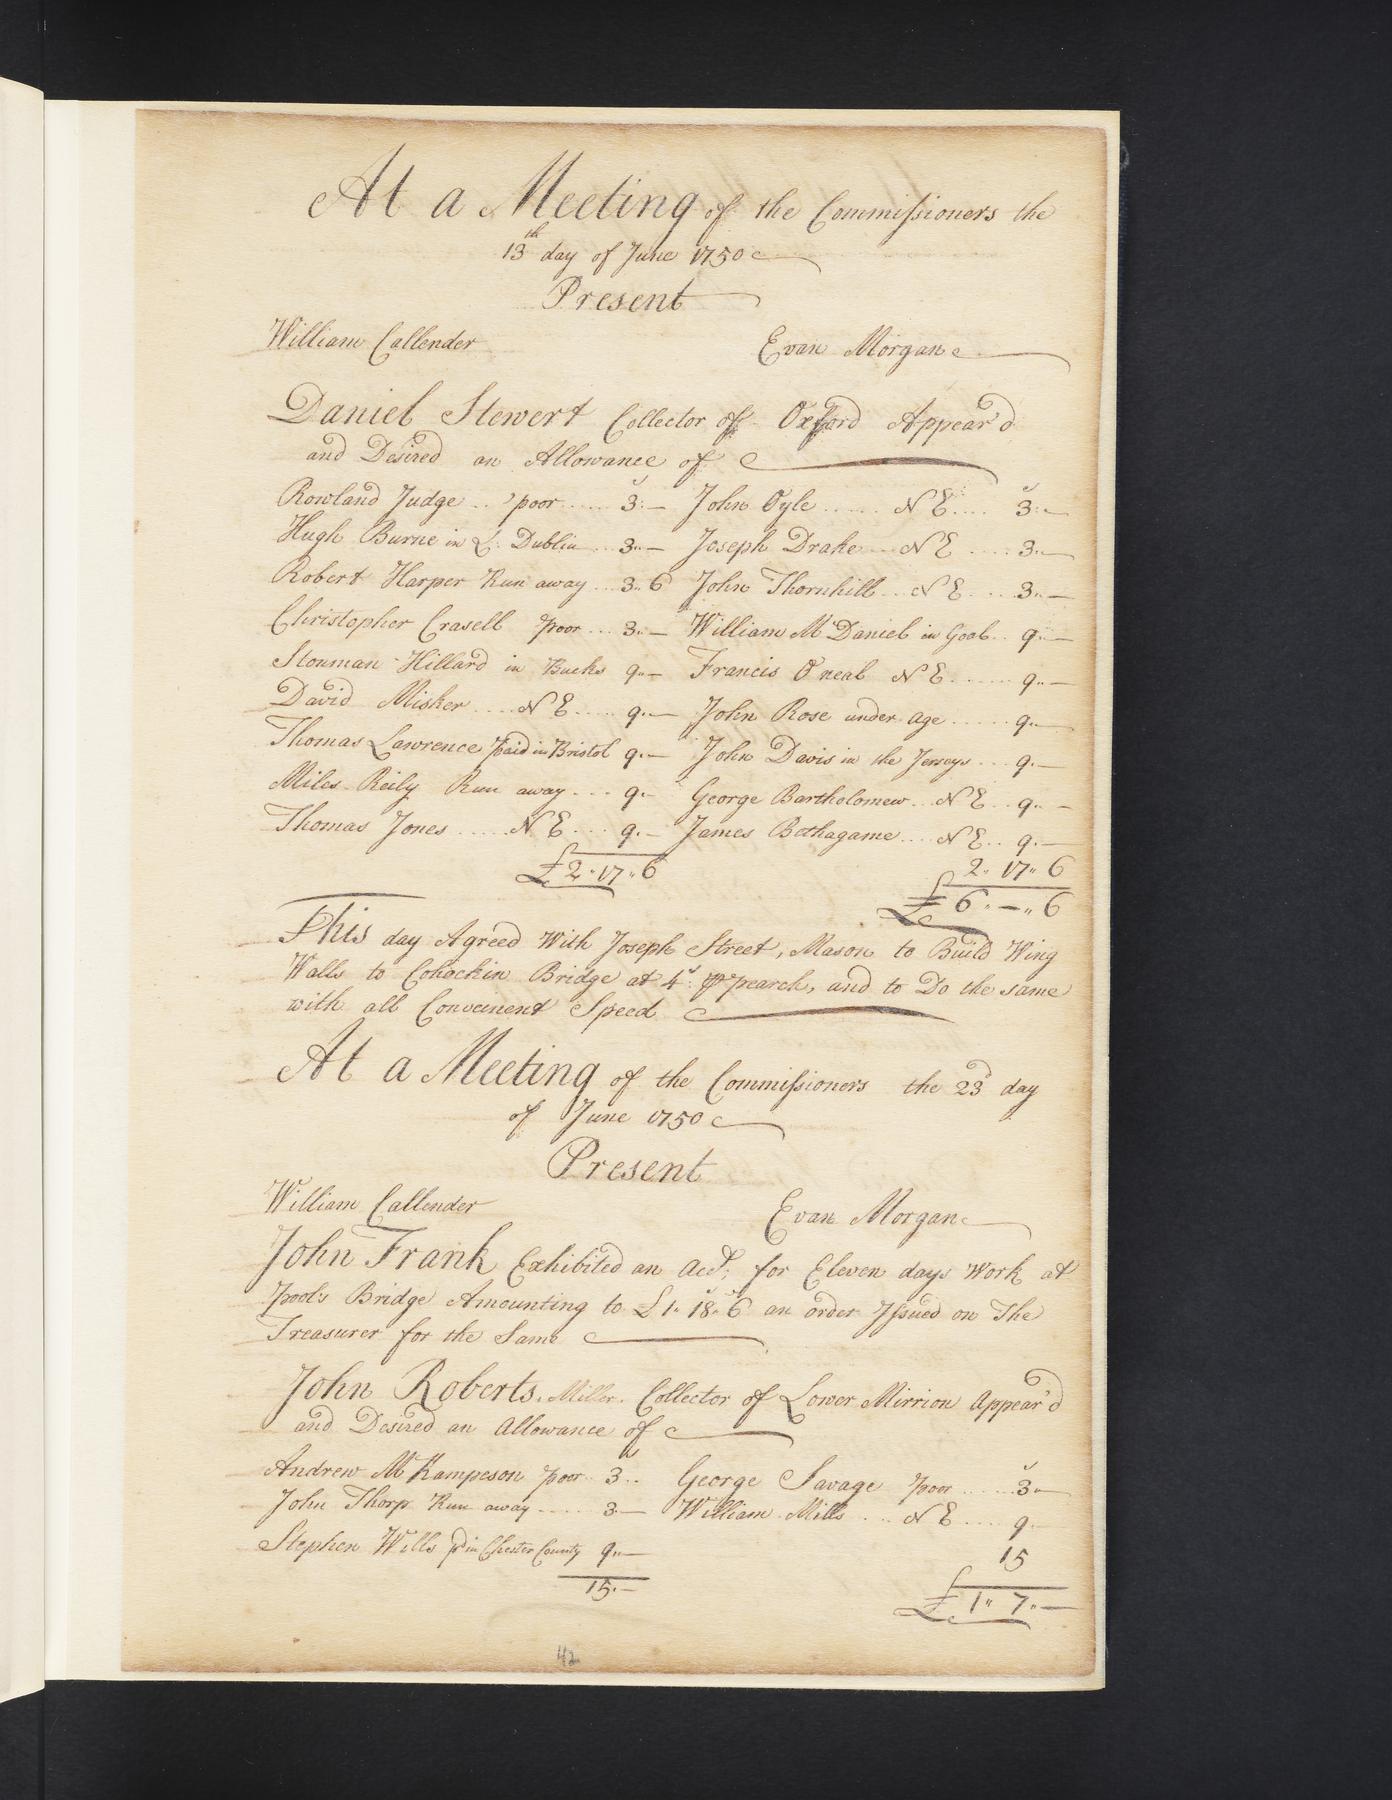 At a Meeting of the Commissioners the
13th day of June 1750
Present
William Callender Evan Morgan
Daniel Stewert Collector of Oxford Appear'd
and Desired an Allowance of
Rowland Judge .. poor ...... 3s..— John Oyle ...... N E .... 3s..—
Hugh Burne in L: Dublin ... 3..— Joseph Drake ... N E .... 3..—
Robert Harper Run away ... 3..6 John Thornhill ... N E .... 3..—
Christopher Crasell poor ... 3..— William McDaniel in Goal .. 9..—
Stonman Hillard in Bucks 9..— Francis O'neal N E ...... 9..—
David Misker .... N E .... 9..— John Rose under age ...... 9..—
Thomas Lawrence paid in Bristol 9..— John Davis in the Jerseys ... 9..—
Miles Reily Run away ... 9..— George Bartholomew .. N E .. 9..—
Thomas Jones ..... N E ... 9..— James Bethagame .... N E .. 9..—
£ 2..17..6 2..17..6
£ 6..—..6
This day Agreed With Joseph Street, Mason to Build Wing
Walls to Cohockin Bridge at 4s ⅌ pearch, and to Do the same
with all Conveinent Speed
At a Meeting of the Commissioners the 23d day
of June 1750
Present
William Callender Evan Morgan
John Frank Exhibited an Acct, for Eleven days Work at
Pools Bridge Amounting to £1..18..6 an order Issued on The
Treasurer for the Same
John Roberts, Miller, Collector of Lower Mirrion Appear'd
and Desired an Allowance of
Andrew McKampeson poor .. 3s.. George Savage poor ...... 3s..—
John Thorp Run away ...... 3..— William Mills .... N E .... 9..
Stephen Wills pd in Chester County 9..— 15
15..— £ 1..7..—
42